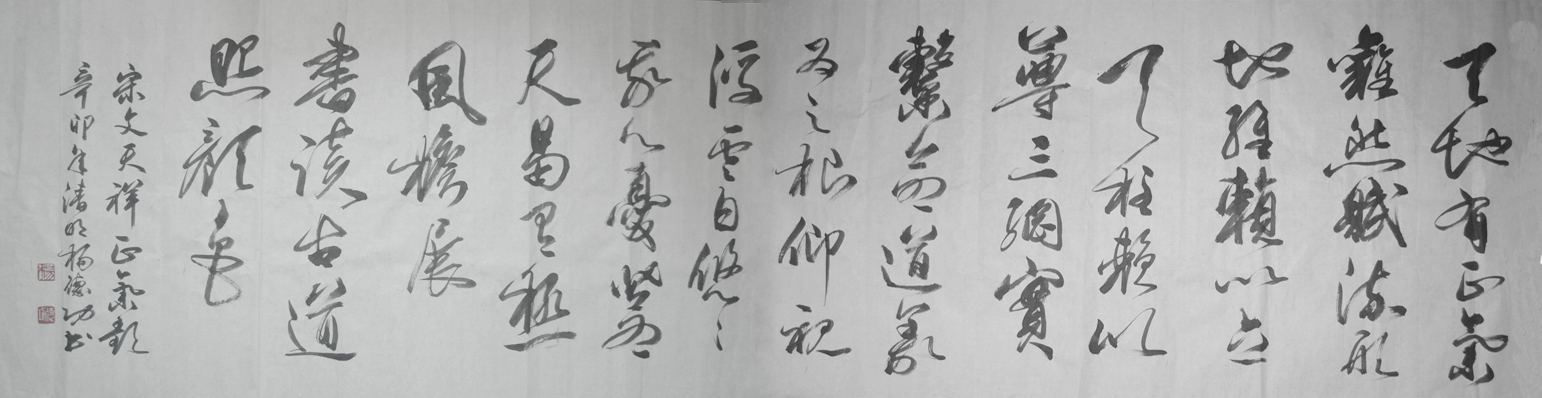 天地有正氣
雜然賦流形
地維賴以立
天柱賴以
尊三綱實
繫命道義
為之根仰視
浮雲白悠〻
我心憂蒼
天曷有極
風檐展
書讀古道
照顏色
宋文天祥正氣歌
辛卯年清明楊德功书